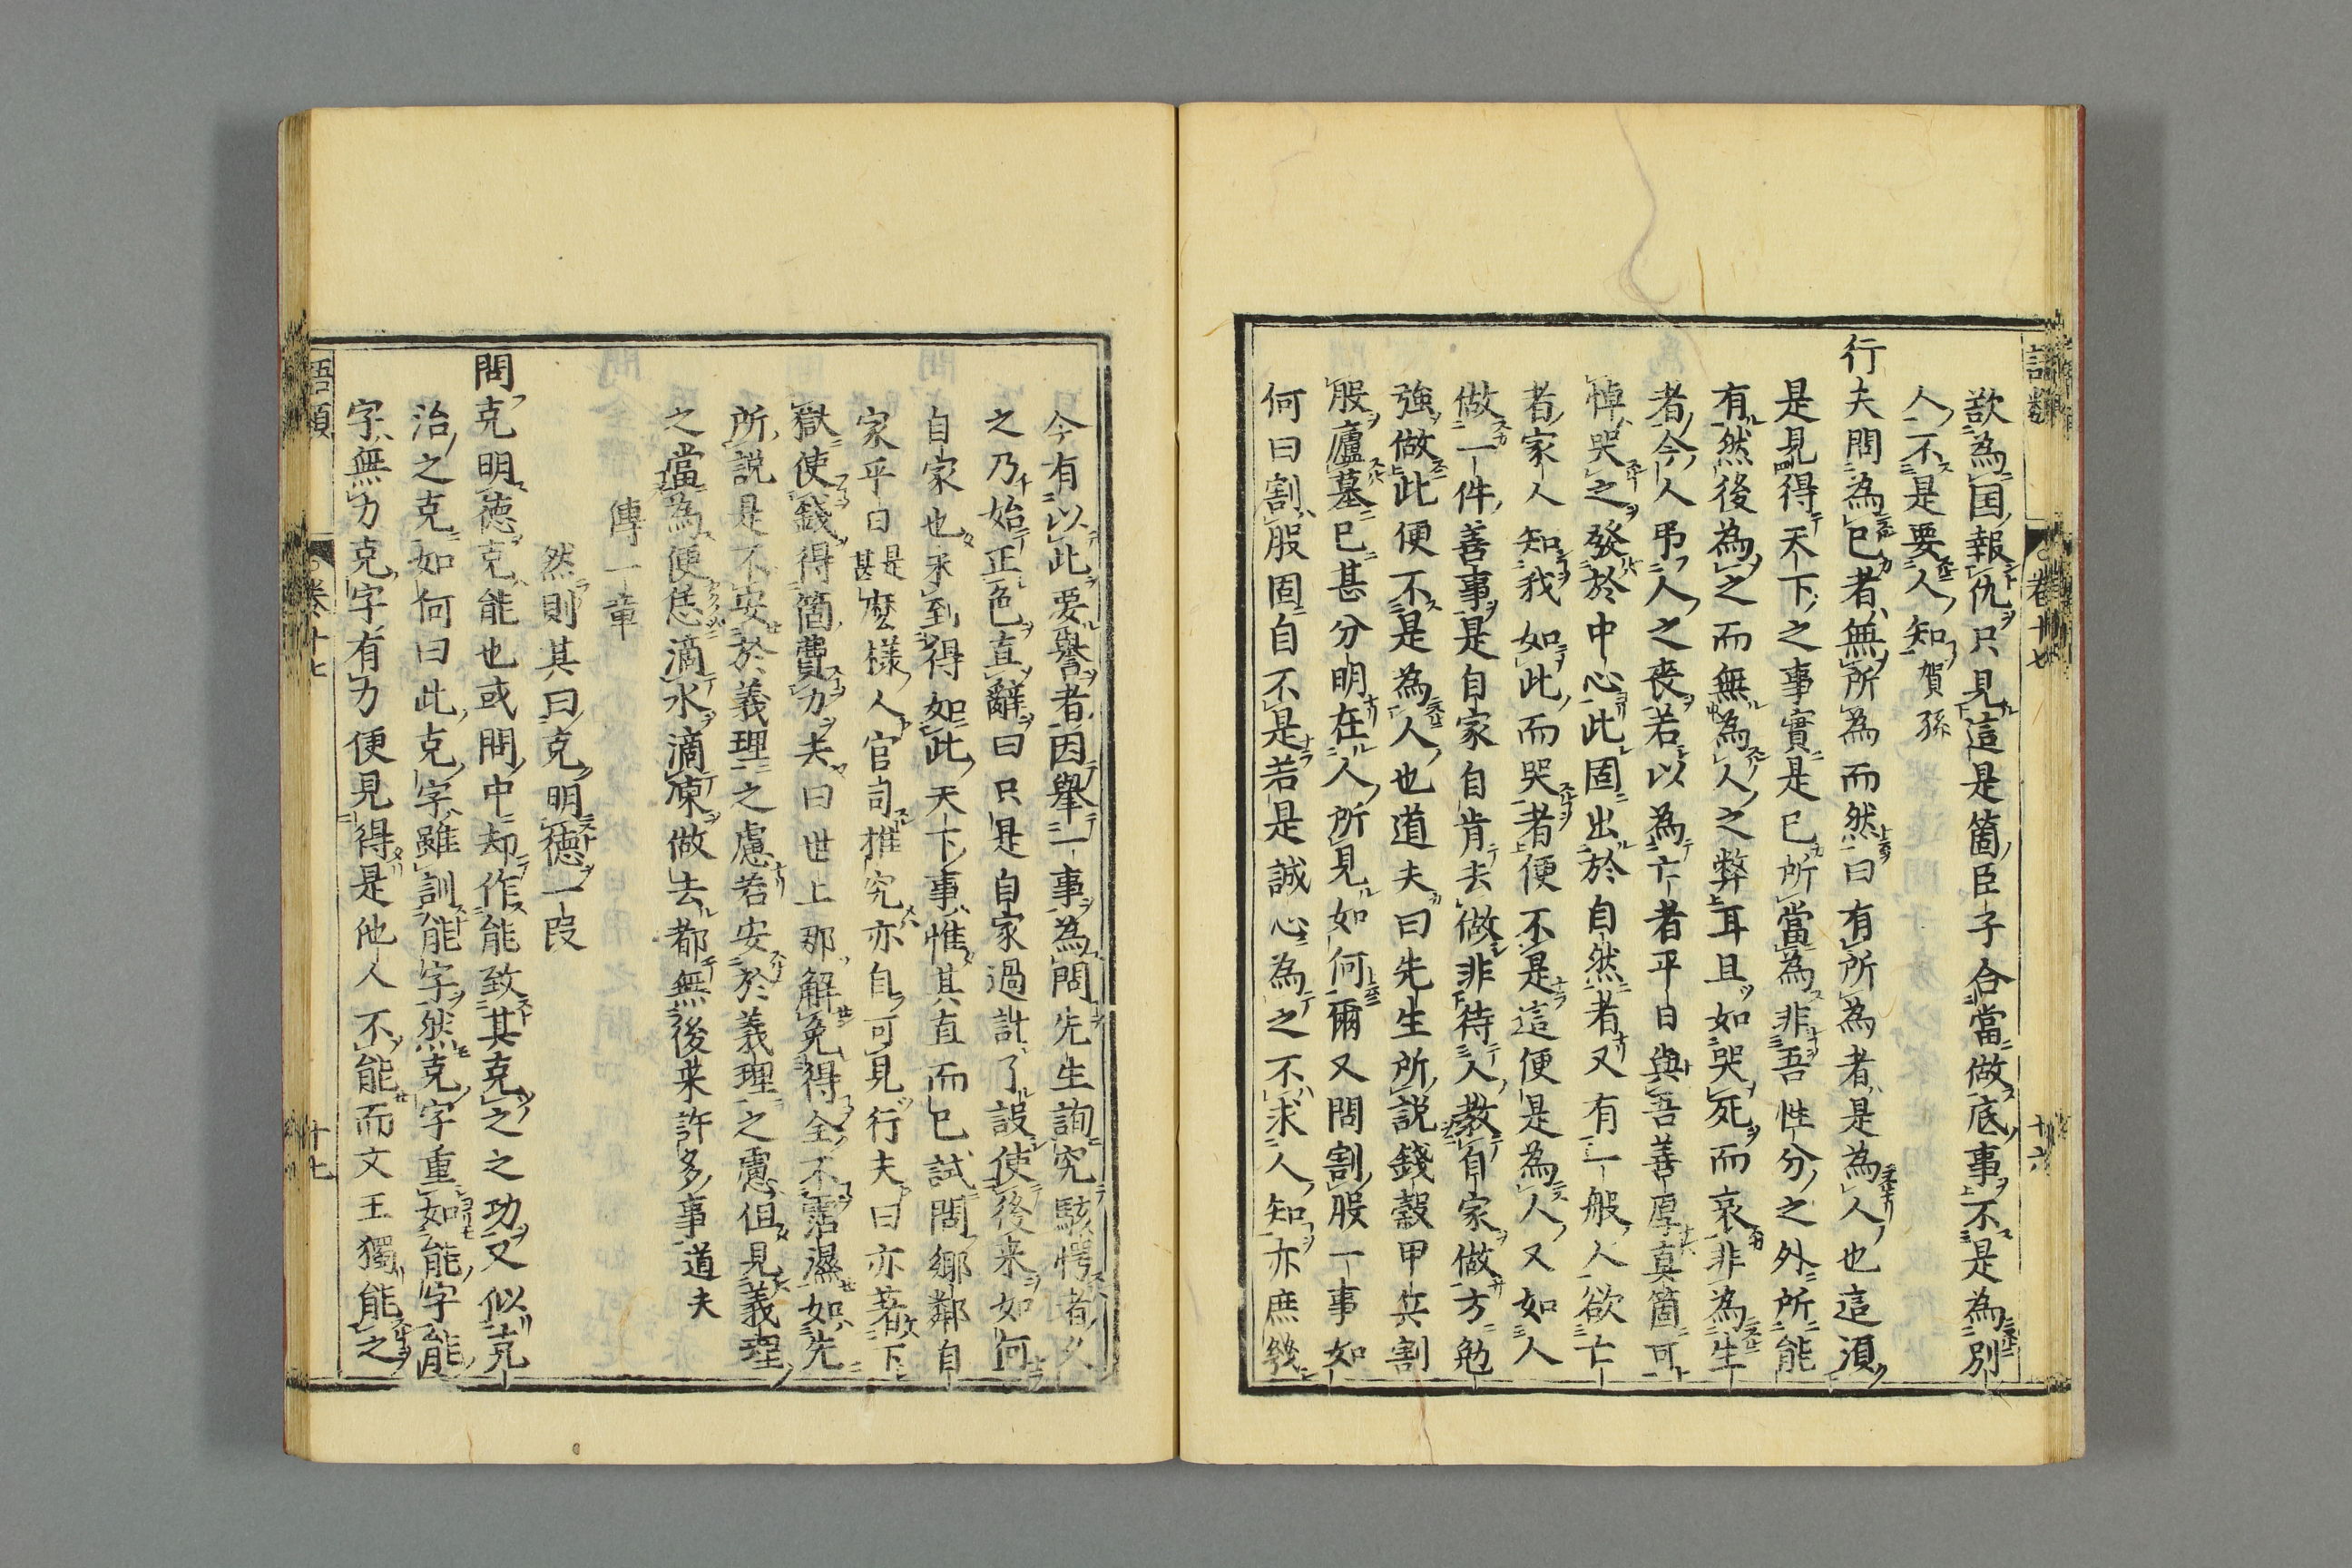 語類 卷十七 十六
欲為国報仇只見這是箇臣子合當做底事不是為別
人不是要人知賀孫
行夫問為已者無所為而然曰有所為者是為人也這湏
是見得天下之事實是已所當為非吾性分之外所能
有然後為之而無為人之弊耳且如哭死而哀非為生
者今人弔人之喪若以為亡者平日與吾善厚真箇可
悼哭之發於中心此固出於自然者又有一般人欲亡
者家人知我如此而哭者便不是這便是為人又如人
做一件善事是自家自肯去做非待人教自家做方勉
強做此便不是為人也道夫曰先生所說錢穀甲兵割
股廬墓已甚分明在人所見如何爾又問割股一事如
何曰割股固自不是若是誠心為之不求人知亦庶幾
今有以此要譽者因舉一事為問先生詢究駭愕者久
之乃始正色直辭曰只是自家過計了設使後来如何
自家也未到得如此天下事惟其直而已試問鄉鄰自
家平日是甚麽樣人官司推究亦自可見行夫曰亦著下
獄使錢得箇費力夫曰世上那解免得全不霑濕如先
所說是不安於義理之慮若安於義理之慮但見義理
之當為便恁滴水滴凍做去都無後来許多事道夫
傳一章
然則其曰克明德一段
問克明德克能也或問中却作能致其克之之功又似克
治之克如何曰此克字雖訓能字然克字重如能字能
字無力克字有力便見得是他人不能而文王獨能之
語類 卷十七 十七